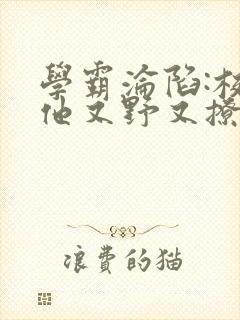 學霸淪陷:校
他又野又撩
浪費的猫